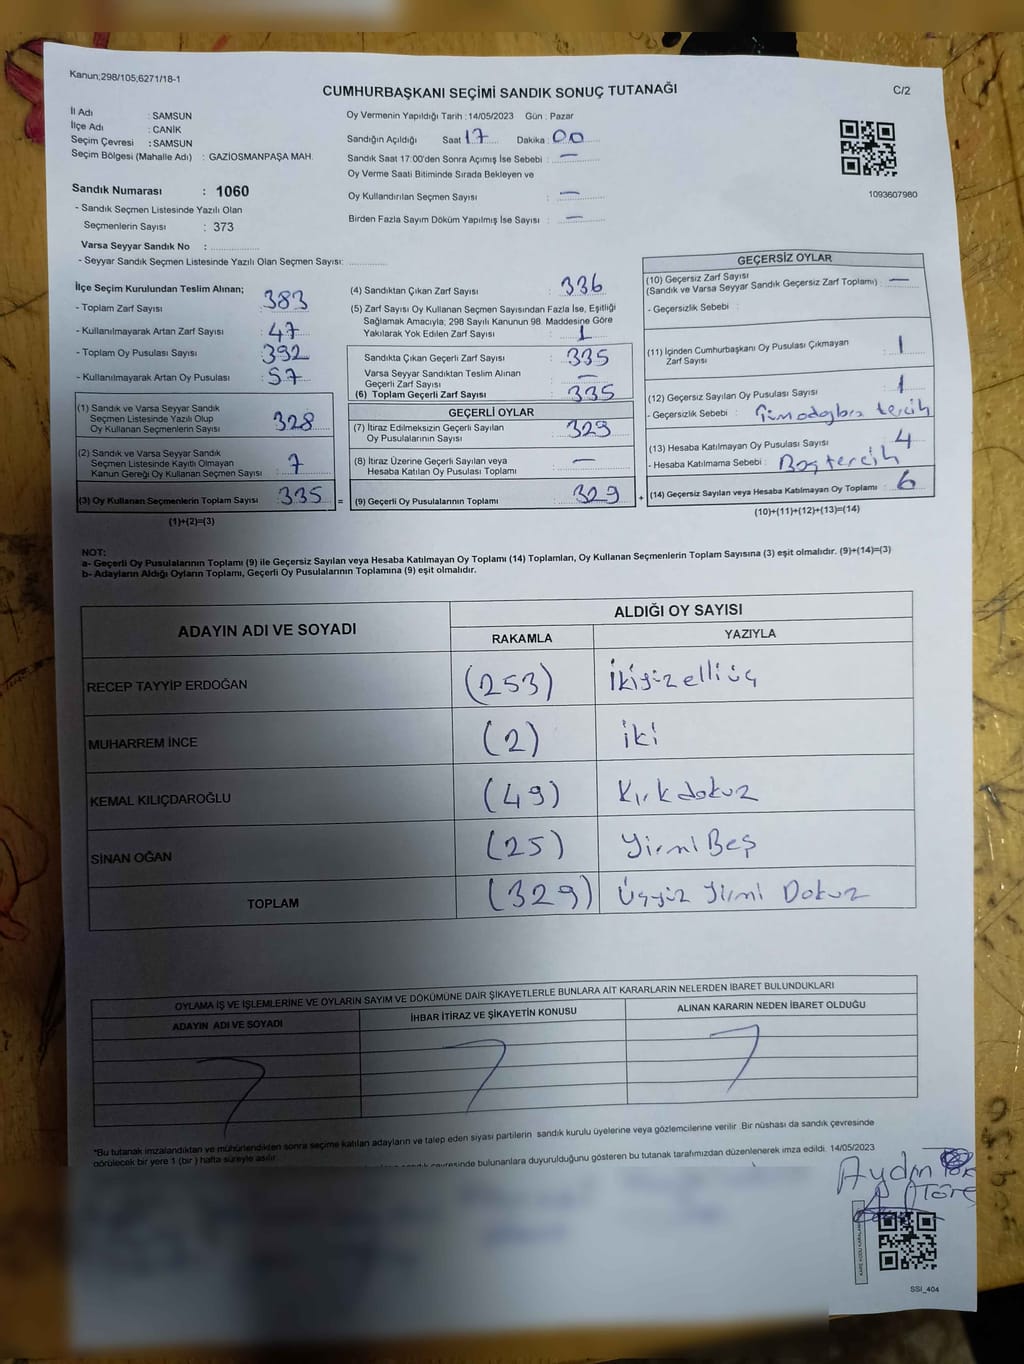 Kanun;298/105;6271/18-1
CUMHURBAŞKANI SEÇİMİ SANDIK SONUÇ TUTANAĞI
C/2
İl Adı : SAMSUN
İlçe Adı : CANİK
Seçim Çevresi : SAMSUN
Seçim Bölgesi (Mahalle Adı) : GAZİOSMANPAŞA MAH.
Sandık Numarası : 1060
- Sandık Seçmen Listesinde Yazılı Olan
Seçmenlerin Sayısı : 373
Varsa Seyyar Sandık No :
- Seyyar Sandık Seçmen Listesinde Yazılı Olan Seçmen Sayısı:
Oy Vermenin Yapıldığı Tarih : 14/05/2023 Gün : Pazar
Sandığın Açıldığı Saat 17 Dakika : 00
Sandık Saat 17:00'den Sonra Açımış İse Sebebi : —
Oy Verme Saati Bitiminde Sırada Bekleyen ve
Oy Kullandırılan Seçmen Sayısı : —
Birden Fazla Sayım Döküm Yapılmış İse Sayısı : —
1093607980
İlçe Seçim Kurulundan Teslim Alınan;
- Toplam Zarf Sayısı : 383
- Kullanılmayarak Artan Zarf Sayısı : 47
- Toplam Oy Pusulası Sayısı : 392
- Kullanılmayarak Artan Oy Pusulası : 57
(1) Sandık ve Varsa Seyyar Sandık
Seçmen Listesinde Yazılı Olup
Oy Kullanan Seçmenlerin Sayısı : 328
(2) Sandık ve Varsa Seyyar Sandık
Seçmen Listesinde Kayıtlı Olmayan
Kanun Gereği Oy Kullanan Seçmen Sayısı : 7
(3) Oy Kullanan Seçmenlerin Toplam Sayısı : 335 =
(1)+(2)=(3)
(4) Sandıktan Çıkan Zarf Sayısı : 336
(5) Zarf Sayısı Oy Kullanan Seçmen Sayısından Fazla İse, Eşitliği
Sağlamak Amacıyla; 298 Sayılı Kanunun 98. Maddesine Göre
Yakılarak Yok Edilen Zarf Sayısı : 1
Sandıkta Çıkan Geçerli Zarf Sayısı : 335
Varsa Seyyar Sandıktan Teslim Alınan
Geçerli Zarf Sayısı : —
(6) Toplam Geçerli Zarf Sayısı : 335
GEÇERLİ OYLAR
(7) İtiraz Edilmeksizin Geçerli Sayılan
Oy Pusulalarının Sayısı : 329
(8) İtiraz Üzerine Geçerli Sayılan veya
Hesaba Katılan Oy Pusulası Toplamı : —
(9) Geçerli Oy Pusulalarının Toplamı : 329 +
GEÇERSİZ OYLAR
(10) Geçersiz Zarf Sayısı
(Sandık ve Varsa Seyyar Sandık Geçersiz Zarf Toplamı) : —
- Geçersizlik Sebebi :
(11) İçinden Cumhurbaşkanı Oy Pusulası Çıkmayan
Zarf Sayısı : 1
(12) Geçersiz Sayılan Oy Pusulası Sayısı : 1
- Geçersizlik Sebebi : tercih
(13) Hesaba Katılmayan Oy Pusulası Sayısı : 4
- Hesaba Katılmama Sebebi : Boş tercih
(14) Geçersiz Sayılan veya Hesaba Katılmayan Oy Toplamı : 6
(10)+(11)+(12)+(13)=(14)
NOT:
a- Geçerli Oy Pusulalarının Toplamı (9) ile Geçersiz Sayılan veya Hesaba Katılmayan Oy Toplamı (14) Toplamları, Oy Kullanan Seçmenlerin Toplam Sayısına (3) eşit olmalıdır. (9)+(14)=(3)
b- Adayların Aldığı Oyların Toplamı, Geçerli Oy Pusulalarının Toplamına (9) eşit olmalıdır.
ADAYIN ADI VE SOYADI
ALDIĞI OY SAYISI
RAKAMLA YAZIYLA
RECEP TAYYİP ERDOĞAN (253) İkiyüzelliüç
MUHARREM İNCE (2) iki
KEMAL KILIÇDAROĞLU (49) Kırkdokuz
SİNAN OĞAN (25) Yirmi Beş
TOPLAM (329) Üçyüz Yirmi Dokuz
OYLAMA İŞ VE İŞLEMLERİNE VE OYLARIN SAYIM VE DÖKÜMÜNE DAİR ŞİKAYETLERLE BUNLARA AİT KARARLARIN NELERDEN İBARET BULUNDUKLARI
ADAYIN ADI VE SOYADI İHBAR İTİRAZ VE ŞİKAYETİN KONUSU ALINAN KARARIN NEDEN İBARET OLDUĞU
"Bu tutanak imzalandıktan ve mühürlendikten sonra seçime katılan adayların ve talep eden siyasi partilerin sandık kurulu üyelerine veya gözlemcilerine verilir .Bir nüshası da sandık çevresinde
görülecek bir yere 1 (bir ) hafta süreyle asılır.
bulunanlara duyurulduğunu gösteren bu tutanak tarafımızdan düzenlenerek imza edildi. 14/05/2023
Aydın
Töre
SSI_404